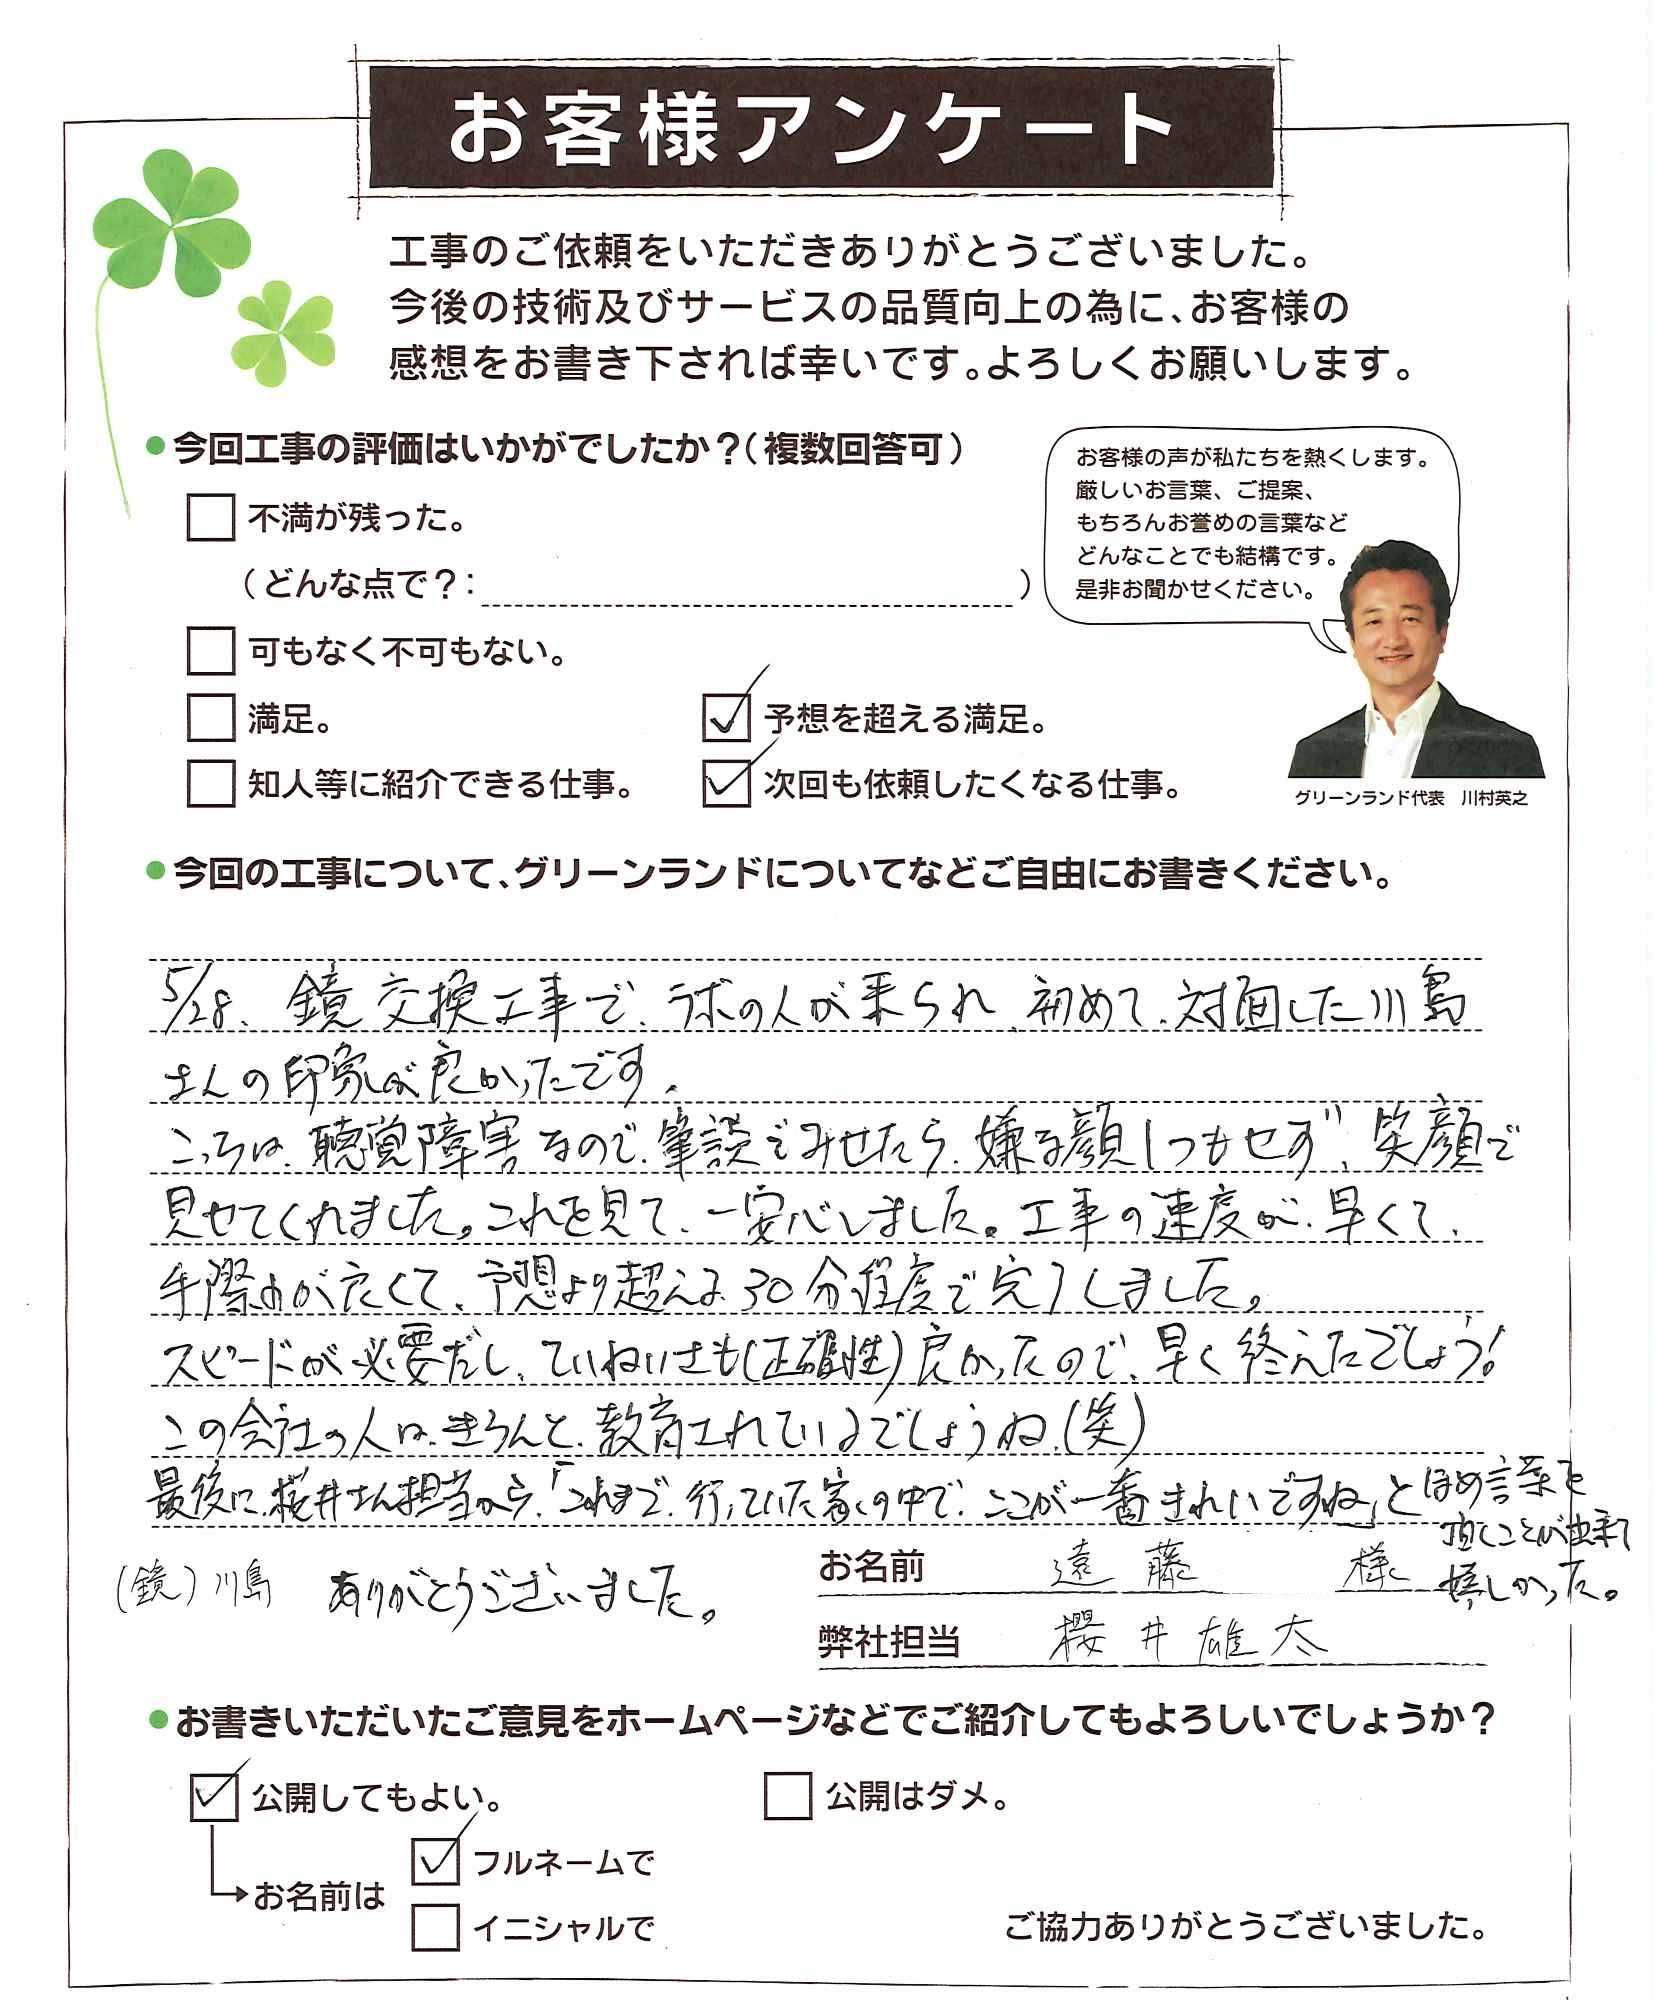 お客様アンケート
工事のご依頼をいただきありがとうございました。
今後の技術及びサービスの品質向上の為に、お客様の
感想をお書き下されば幸いです。よろしくお願いします。
●今回工事の評価はいかがでしたか？（複数回答可）
不満が残った。
（どんな点で？：　）
可もなく不可もない。
満足。
予想を超える満足。
知人等に紹介できる仕事。
次回も依頼したくなる仕事。
お客様の声が私たちを熱くします。
厳しいお言葉、ご提案、
もちろんお誉めの言葉など
どんなことでも結構です。
是非お聞かせください。
グリーンランド代表　川村英之
●今回の工事について、グリーンランドについてなどご自由にお書きください。
5/28、鏡交換工事で、ラボの人が来られ、初めて、対面した川島
さんの印象が良かったです。
こっちは、聴覚障害なので、筆談でみせたら、嫌な顔1つもせず、笑顔で
見せてくれました。これを見て、一安心しました。工事の速度が、早くて、
手際よが良くて、予想より超える30分程度で完了しました。
スピードが必要だし、ていねいさも(正確性)良かったので、早く終えたでしょう!
この会社の人は、きちんと、教育されているでしょうね、(笑)
最後に、桜井さん担当から、「これまで、行っていた家の中で、ここが一番きれいですね」とほめ言葉を
頂くことが出来て
嬉しかった。
(鏡)川島　ありがとうございました。
お名前　遠藤　様
弊社担当　櫻井雄太
●お書きいただいたご意見をホームページなどでご紹介してもよろしいでしょうか？
公開してもよい。
公開はダメ。
お名前は
フルネームで
イニシャルで
ご協力ありがとうございました。